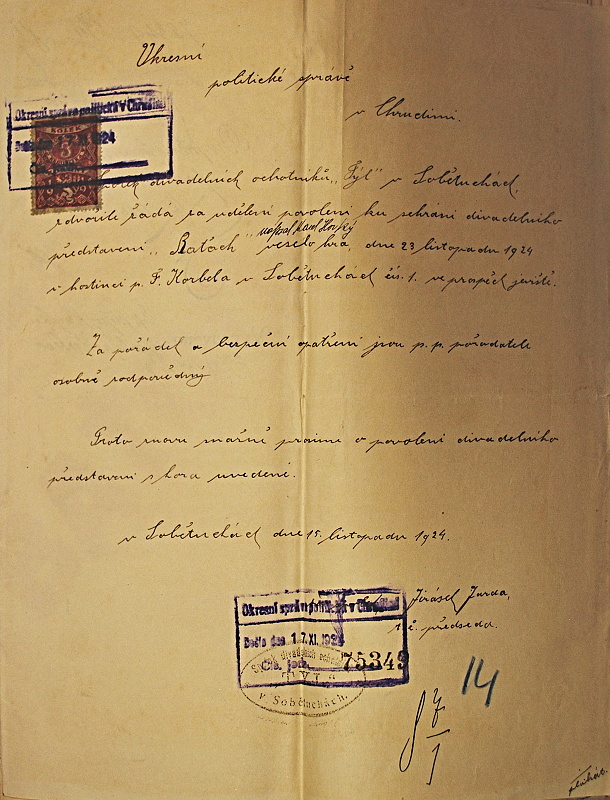 Okresní
politické správě
v Chrudimi.
Okresní správa politická v Chrudimi
KOLEK
Došlo dne 17. XI. 1924
Čís.
divadelních ochotníků „Tyl" v Sobětuchách,
zdvořile žádá za udělení povolení ku sehrání divadelního
napsal Karel
představení „Raťach" veselo hra, dne 23 listopadu 1924
v hostinci p. F. Korbela v Sobětuchách čís. 1. ve prospěch jeviště.
Za pořádek a bezpeční opatření jsou p. p. pořadatelé
osobně zodpovědný
Proto znovu snažně prosíme o povolení divadelního
představení shora uvedení.
v Sobětuchách dne 15. listopadu 1924.
Jirásek Jarda,
t. č. předseda.
Okresní správa politická v Chrudimi
Došlo dne 17. XI. 1924
Čís. jedn. 75349
divadelních
TYL
v Sobětuchách.
14